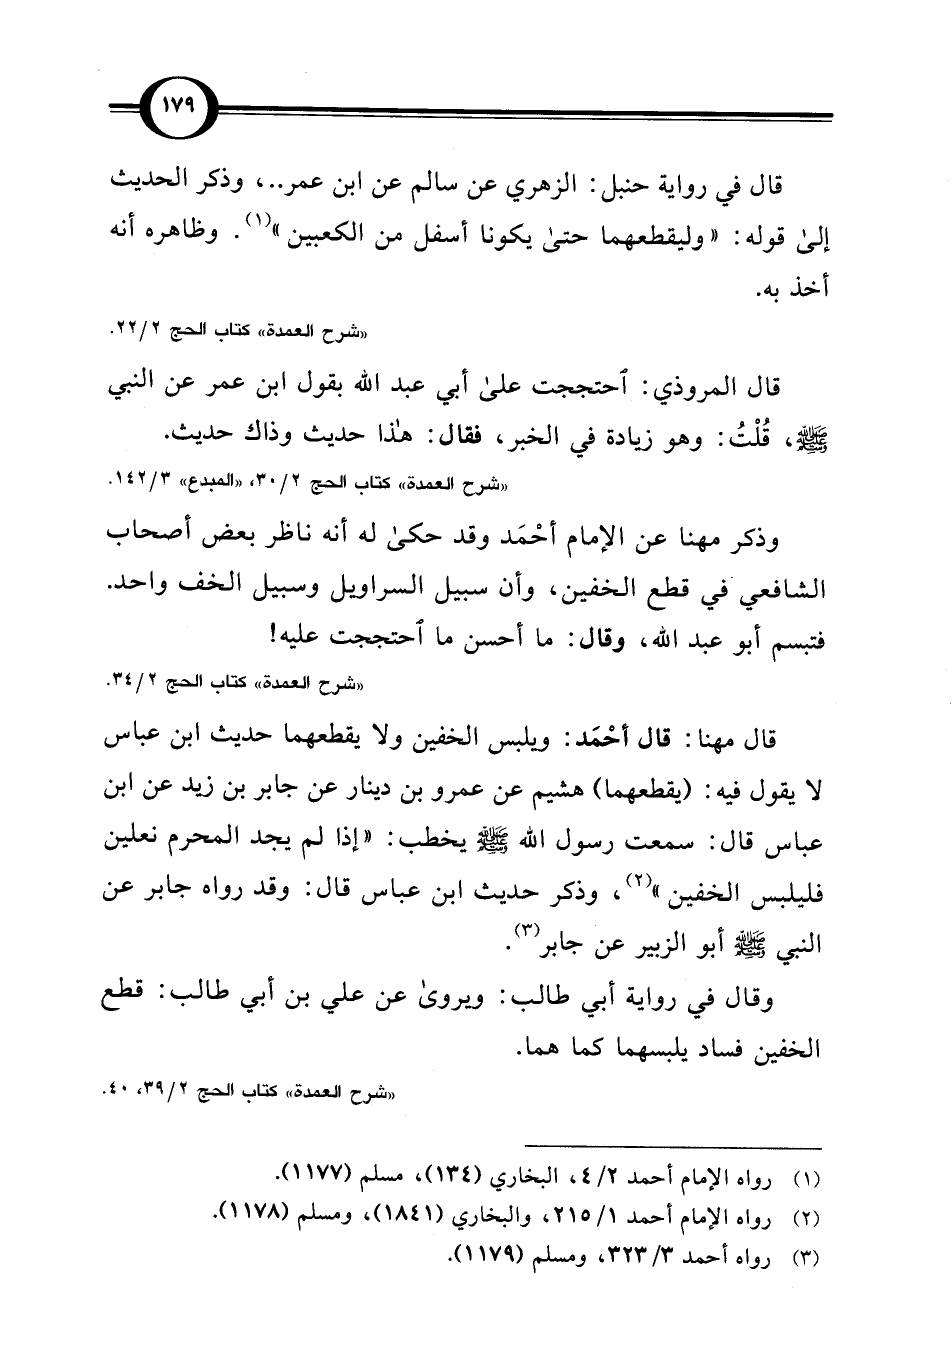 ١٧٩
قال في رواية حنبل: الزهري عن سالم عن ابن عمر..، وذكر الحديث
إلىٰ قوله: «وليقطعهما حتىٰ يكونا أسفل من الكعبين»(١). وظاهره أنه
أخذ به.
«شرح العمدة» كتاب الحج ٢/٢٢.
قال المروذي: ٱحتججت علىٰ أبي عبد الله بقول ابن عمر عن النبي
ﷺ، قُلْتُ: وهو زيادة في الخبر، فقال: هٰذا حديث وذاك حديث.
«شرح العمدة» كتاب الحج ٢/٣٠، «المبدع» ٣/١٤٢.
وذكر مهنا عن الإمام أحْمَد وقد حكىٰ له أنه ناظر بعض أصحاب
الشافعي في قطع الخفين، وأن سبيل السراويل وسبيل الخف واحد.
فتبسم أبو عبد الله، وقال: ما أحسن ما ٱحتججت عليه!
«شرح العمدة» كتاب الحج ٢/٣٤.
قال مهنا: قال أحْمَد: ويلبس الخفين ولا يقطعهما حديث ابن عباس
لا يقول فيه: (يقطعهما) هشيم عن عمرو بن دينار عن جابر بن زيد عن ابن
عباس قال: سمعت رسول الله ﷺ يخطب: «إذا لم يجد المحرم نعلين
فليلبس الخفين»(٢)، وذكر حديث ابن عباس قال: وقد رواه جابر عن
النبي ﷺ أبو الزبير عن جابر(٣).
وقال في رواية أبي طالب: ويروىٰ عن علي بن أبي طالب: قطع
الخفين فساد يلبسهما كما هما.
«شرح العمدة» كتاب الحج ٢/٣٩، ٤٠.
(١) رواه الإمام أحمد ٢/٤، البخاري (١٣٤)، مسلم (١١٧٧).
(٢) رواه الإمام أحمد ١/٢١٥، والبخاري (١٨٤١)، ومسلم (١١٧٨).
(٣) رواه أحمد ٣/٣٢٣، ومسلم (١١٧٩).